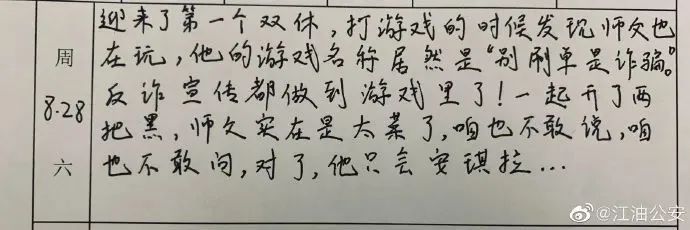 周
8.28
六
迎来了第一个双休，打游戏的时候发现师父也
在玩，他的游戏名称居然是“别刷单是诈骗。”
反诈宣传都做到游戏里了！一起开了两
把黑，师父实在是太菜了，咱也不敢说，咱
也不敢问，对了，他只会安琪拉...
@江油公安